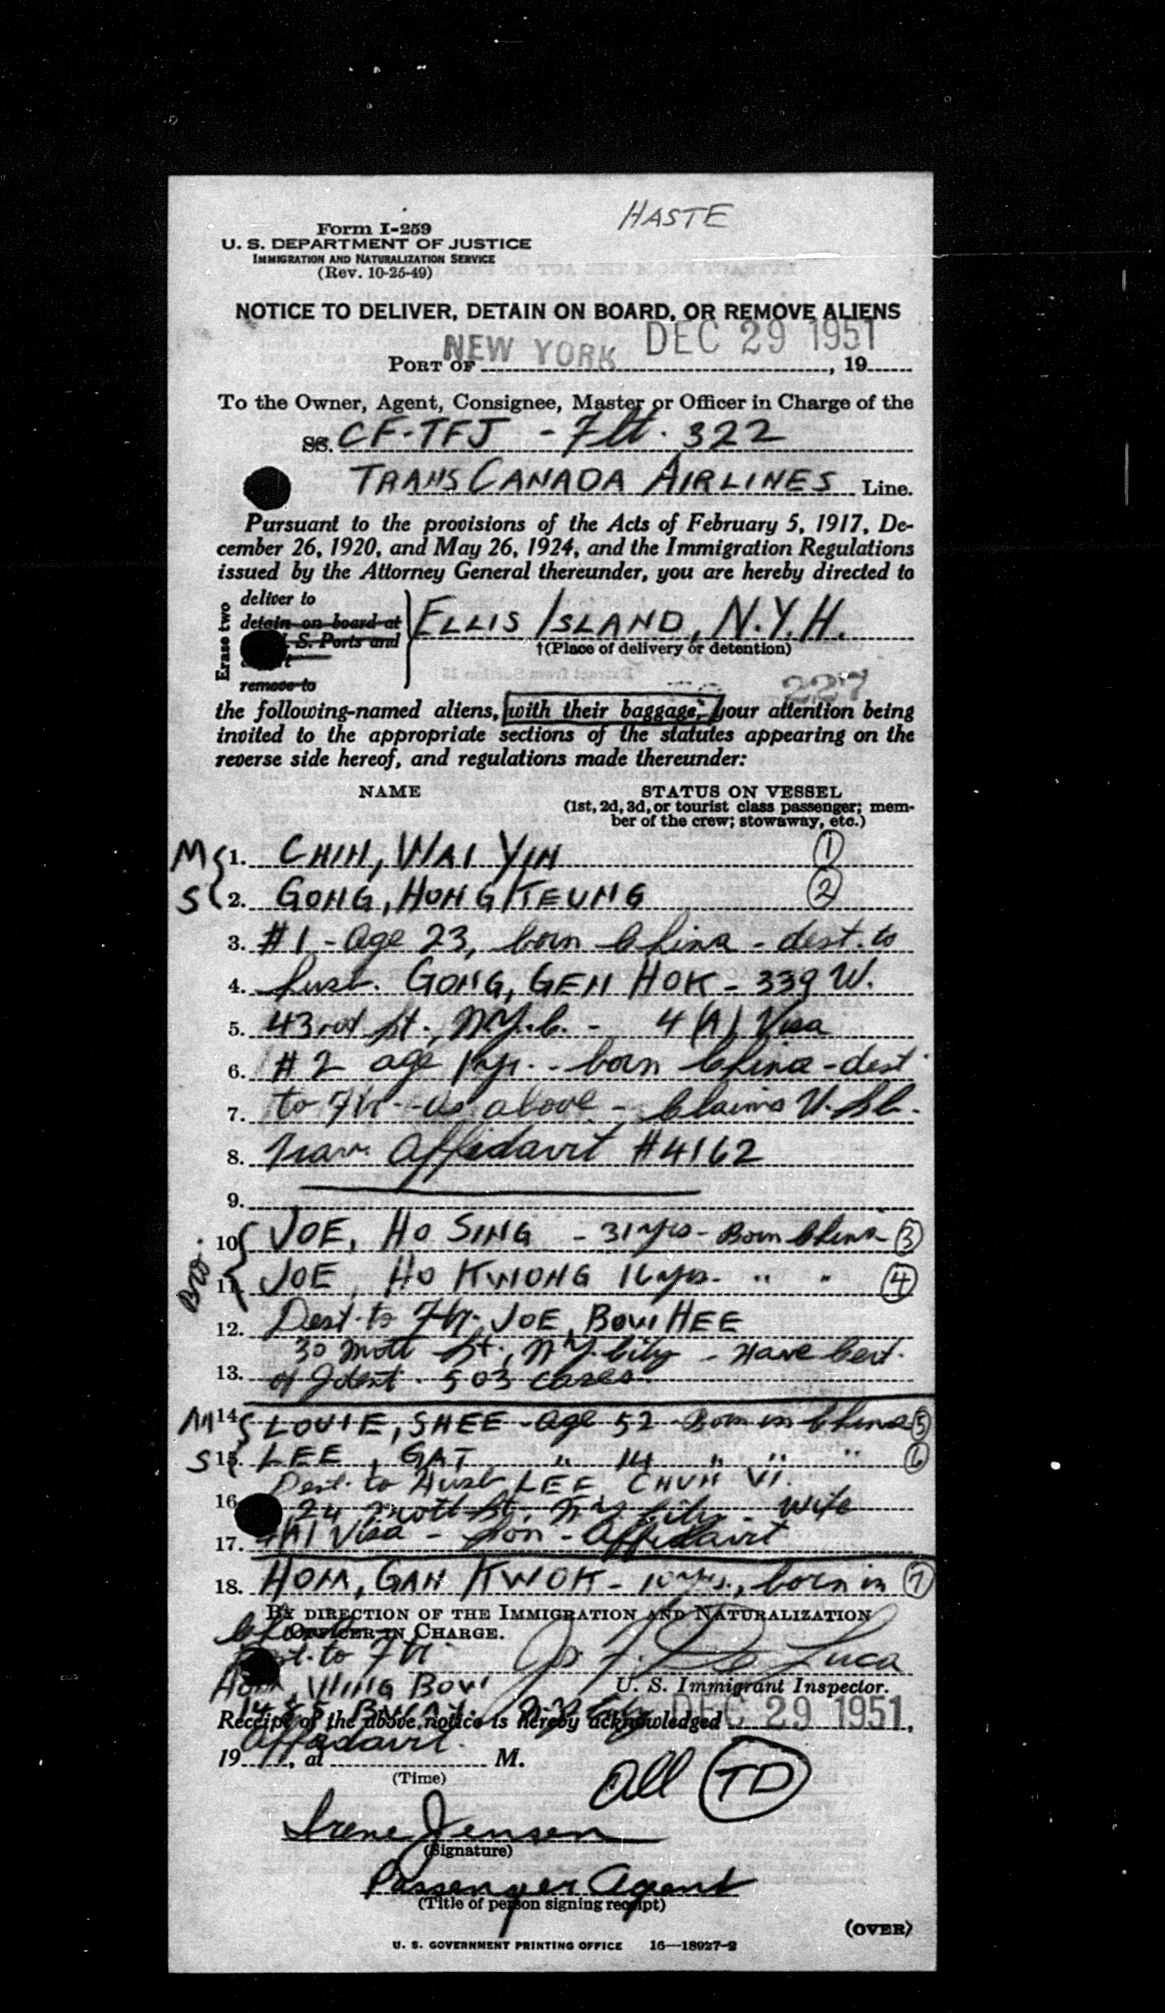 HASTE
Form I-259
U. S. DEPARTMENT OF JUSTICE
IMMIGRATION AND NATURALIZATION SERVICE
(Rev. 10-25-49)
NOTICE TO DELIVER, DETAIN ON BOARD, OR REMOVE ALIENS
DEC 29 1951
PORT OF NEW YORK, 19
To the Owner, Agent, Consignee, Master or Officer in Charge of the
SS. CF-TFJ - Flt. 322
TRANS CANADA AIRLINES Line.
Pursuant to the provisions of the Acts of February 5, 1917, De-
cember 26, 1920, and May 26, 1924, and the Immigration Regulations
issued by the Attorney General thereunder, you are hereby directed to
Erase two
deliver to
detain on board at
S. Ports and
remove to
ELLIS ISLAND, N.Y.H.
†(Place of delivery or detention)
227
the following-named aliens, with their baggage, your attention being
invited to the appropriate sections of the statutes appearing on the
reverse side hereof, and regulations made thereunder:
NAME
STATUS ON VESSEL
(1st, 2d, 3d, or tourist class passenger; mem-
ber of the crew; stowaway, etc.)
M 1. CHIN, WAI YIN 1
S 2. GONG, HONG KEUNG 2
3. #1 - Age 23, born China - dest. to
4. husb. GONG, GEN HOK - 339 W.
5. 43rd St., N.Y.C. - 4(A) Visa
6. #2 age 1 yr. - born China - dest
7. to Fthr - as above - Claims U.S.C.
8. Trav. Affidavit #4162
9.
10. JOE, HO SING - 31 yrs - Born China 3
Bro.
11. JOE, HO KWONG 16 yrs. " " 4
12. Dest. to Fthr. JOE, BOW HEE
30 Mott St., N.Y. City - Have Cert.
13. of Ident. 503 cases
M 14. LOUIE, SHEE - age 52 Born in China 5
S 15. LEE, GAT " 14 " " " 6
Dest. to Husb LEE CHUN
16. 24 Mott St. N.Y. City - Wife
17. 4(A) Visa - Son - Affidavit
18. HOM, GAN KWOK - 10 yrs., born in 7
BY DIRECTION OF THE IMMIGRATION AND NATURALIZATION
OFFICER IN CHARGE.
China
Dest. to Fthr
Jos. F. De Luca
HOM, WING BOW
U. S. Immigrant Inspector.
N.Y. City
DEC 29 1951
Receipt of the above notice is hereby acknowledged
Affidavit.
19, at M.
(Time)
All TD
Irene Jensen
(Signature)
Passenger Agent
(Title of person signing receipt)
(OVER)
U. S. GOVERNMENT PRINTING OFFICE 16—18927-2